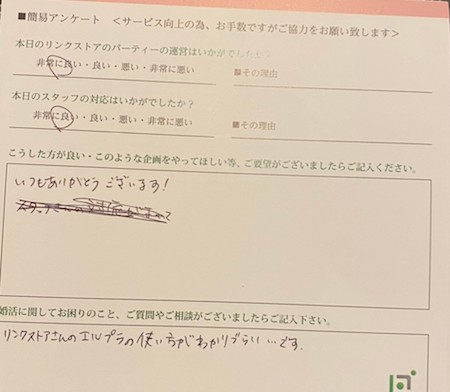 ■簡易アンケート <サービス向上の為、お手数ですがご協力をお願い致します>
本日のリンクストアのパーティーの運営はいかがでしたか?
非常に良い・良い・悪い・非常に悪い ■その理由
本日のスタッフの対応はいかがでしたか?
非常に良い・良い・悪い・非常に悪い ■その理由
こうした方が良い・このような企画をやってほしい等、ご要望がございましたらご記入ください。
いつもありがとうございます!
婚活に関してお困りのこと、ご質問やご相談がございましたらご記入下さい。
リンクストアさんのエルプラの使い方がわかりづらい…です.